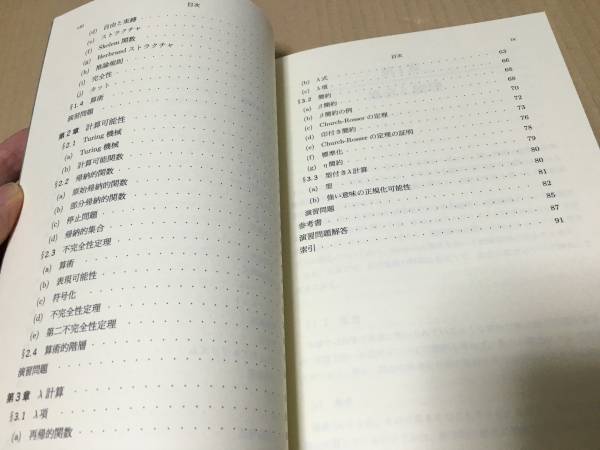 viii 目次
(d) 自由と束縛
(e) ストラクチャ
(f) Skolem 関数
(g) Herbrand ストラクチャ
(h) 推論規則
(i) 完全性
(j) カット
§1.4 算術
演習問題
第2章 計算可能性
§2.1 Turing 機械
(a) Turing 機械
(b) 計算可能関数
§2.2 帰納的関数
(a) 原始帰納的関数
(b) 部分帰納的関数
(c) 停止問題
(d) 帰納的集合
§2.3 不完全性定理
(a) 算術
(b) 表現可能性
(c) 符号化
(d) 不完全性定理
(e) 第二不完全性定理
§2.4 算術的階層
演習問題
第3章 λ計算
§3.1 λ項
(a) 再帰的関数
目次 ix
(b) λ式 63
(c) λ項 66
§3.2 簡約 65
(a) β簡約 68
(b) β簡約の例 70
(c) Church-Rosser の定理 72
(d) 印付き簡約 73
(e) Church-Rosser の定理の証明 74
(f) 標準化 76
(g) η簡約 78
§3.3 型付きλ計算 79
(a) 型 80
(b) 強い意味の正規化可能性 81
演習問題 82
参考書 85
演習問題解答 87
索引 91